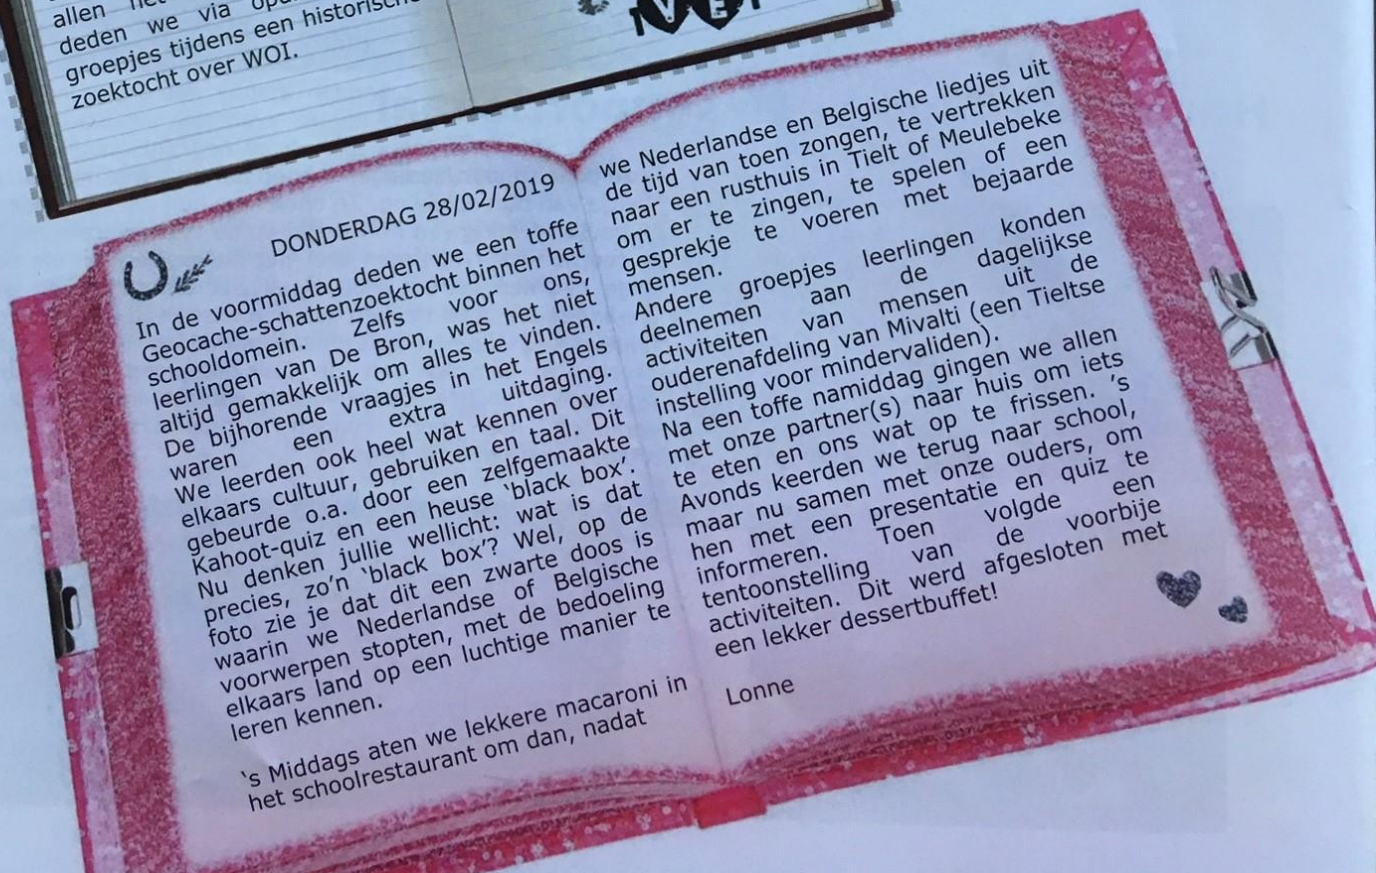 allen
deden we via
groepjes tijdens een historische
zoektocht over WOI.
DONDERDAG 28/02/2019
In de voormiddag deden we een toffe
Geocache-schattenzoektocht binnen het
schooldomein. Zelfs voor ons,
leerlingen van De Bron, was het niet
altijd gemakkelijk om alles te vinden.
De bijhorende vraagjes in het Engels
waren een extra uitdaging.
We leerden ook heel wat kennen over
elkaars cultuur, gebruiken en taal. Dit
gebeurde o.a. door een zelfgemaakte
Kahoot-quiz en een heuse ‘black box’.
Nu denken jullie wellicht: wat is dat
precies, zo’n ‘black box’? Wel, op de
foto zie je dat dit een zwarte doos is
waarin we Nederlandse of Belgische
voorwerpen stopten, met de bedoeling
elkaars land op een luchtige manier te
leren kennen.
‘s Middags aten we lekkere macaroni in
het schoolrestaurant om dan, nadat
we Nederlandse en Belgische liedjes uit
de tijd van toen zongen, te vertrekken
naar een rusthuis in Tielt of Meulebeke
om er te zingen, te spelen of een
gesprekje te voeren met bejaarde
mensen.
Andere groepjes leerlingen konden
deelnemen aan de dagelijkse
activiteiten van mensen uit de
ouderenafdeling van Mivalti (een Tieltse
instelling voor mindervaliden).
Na een toffe namiddag gingen we allen
met onze partner(s) naar huis om iets
te eten en ons wat op te frissen. ’s
Avonds keerden we terug naar school,
maar nu samen met onze ouders, om
hen met een presentatie en quiz te
informeren. Toen volgde een
tentoonstelling van de voorbije
activiteiten. Dit werd afgesloten met
een lekker dessertbuffet!
Lonne